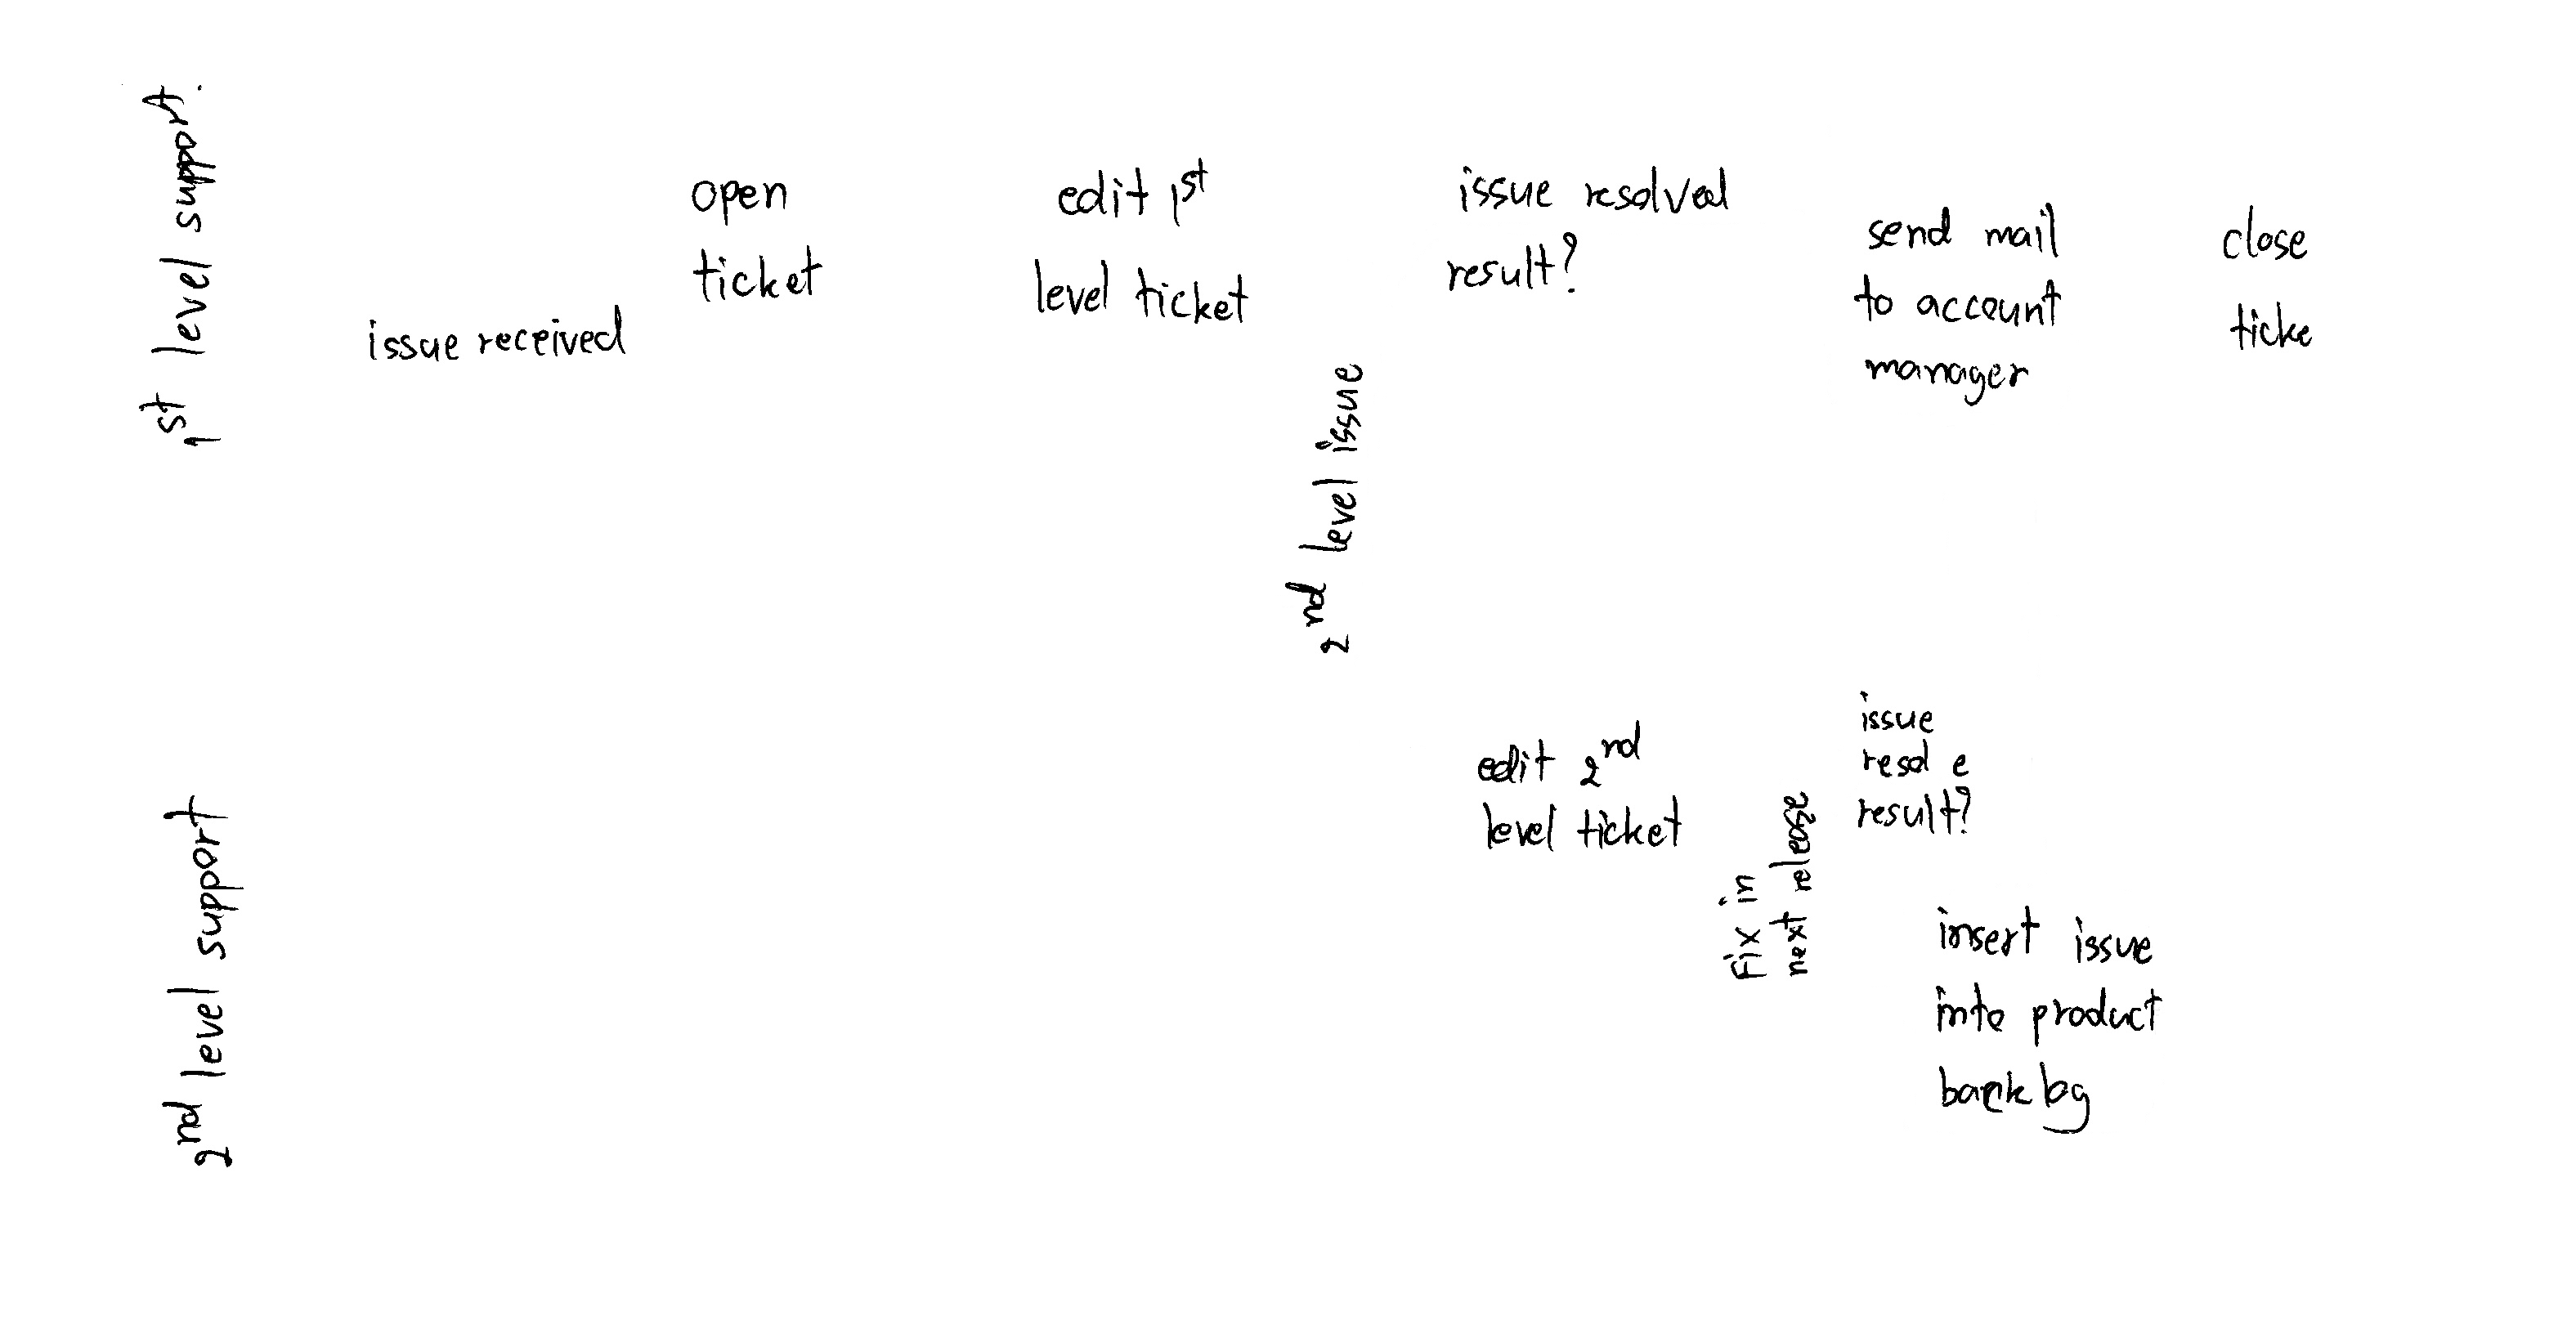 1st level support
issue received
open
ticket
edit 1st
level ticket
2nd level issue
issue resolved
result?
send mail
to account
manager
close
ticke
2nd level support
edit 2nd
level ticket
fix in
next release
issue
resol e
result?
insert issue
into product
backlog